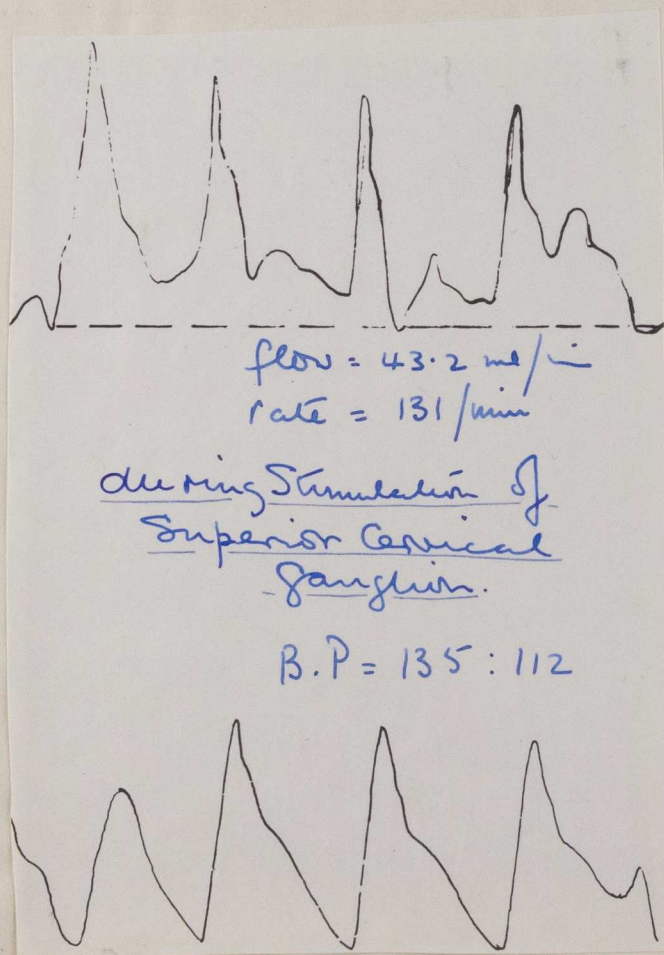 flow = 43.2 ml/min
rate = 131/min
during Stimulation of
Superior Cervical
Ganglion.
B.P = 135 : 112